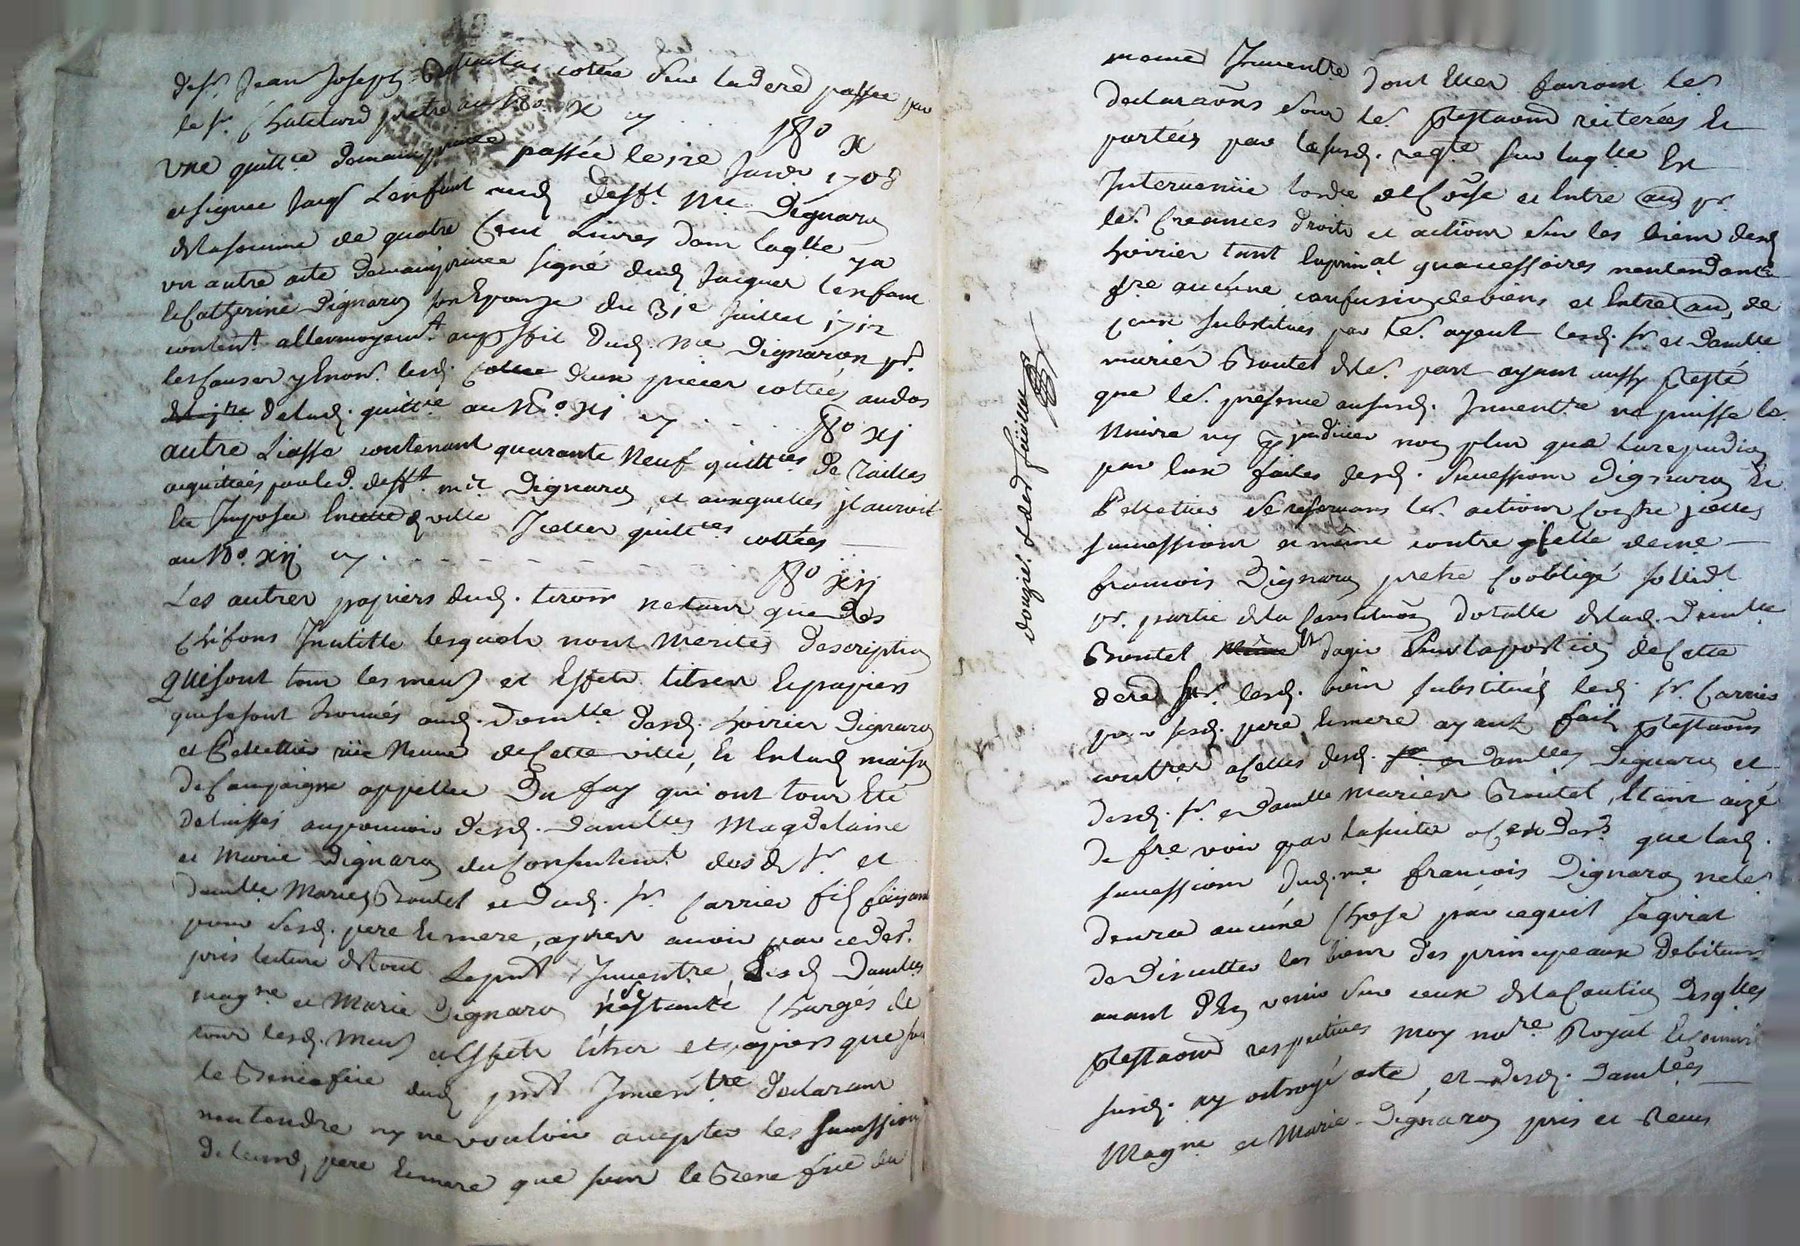 de sr. Jean Joseph cottée sur lad. passée par
le sr. Chatelard pretre au No. X
No. X
une quittce. demain privée passée le Janer 1708
et signée Jacq Lenfant aud. defft. Me. Dignaron
de la somme de quatre Cent Livres dans laqlle ya
un autre acte demain privée signé dud. Jacques Lenfant
et Catherine Dignaron son Epouze du 31e Juillet 1712
content. attermoyemt. au proffit dud. Me. Dignaron pr.
les causes y Enon. lesd. deux pieces cottées au dos
de lad. quittce au No. XI
No. XI
autre Liasse contenant quarante Neuf quittces de Tailles
acquittées par led. defft. me. Dignaron, et auxquelles il auroit
Eté Imposé ville Icelles quittces cottées
au No. XII
No. XII
Les autres papiers dud. tiroir netant que des
Chifons Inutille lesquels nont merités description
qui sont tous les meub et Effets titres Et papiers
qui se sont trouvés aud. domlle. desd. hoiries Dignaron
et Pelletier rüe Neuve de Cette ville, Et En lad. maison
de Campagne appellée Du fay qui ont tous Eté
delaissés au pouvoir desd. Damlles Magdelaine
et Marie Dignaron du Consentemt. desd. Sr. et
Damlle Mariés Boutel et dud. Sr. Carrier fils faisant
pour sesd. pere Et mere, apres avoir par ce der.
pris lecture de tout Le pnt Inventre. Lesd. Damlles
magne. et Marie Dignaron se Chargés de
tous lesd. Meub et Effets titres et papiers que sous
le Benefice dud. pnt Inventre declarant
nentendre ny ne vouloir accepter les successions
de leurd. pere Et mere que sous le Benefice du
meme Inventre dont Elles fairont les
declaraons sous les Protestaons reiterées Et
portées par la susd. reqte sur laqlle Est
Intervenüe lordce et Entre autre pr.
les Creances droits et actions sur les biens desd.
hoiries tant En prinal qu'accessoires nentendant
fre aucune confusion de biens et Entre autre de
ceux substitués par les ayeux lesd. Sr. et Damlle
mariés Boutel de leur part ayant aussy Protesté
que leur présence au susd. Inventre ne puisse le.
Nuire ny prejudicier non plus que la repudion
par Eux faites desd. successions Dignaron Et
Pelletier se reservant leurs actions contre icelles
successions et même contre celle de me
francois Dignaron pretre Coobligé sollidt
pr. partie de la Constituon dotalle de lad. Damlle
Boutel dagir sur la portion de Cette
dere sur lesd. biens substitués led. Sr. Carrier
pour sesd. pere Et mere ayant fait Protestaons
contres a Celles desd. Damlles Dignaron et
desd. Sr. et Damlle Mariés Boutel, Etant aizé
de fre voir par la suite a Ces Ders que lad.
succession dud. me. francois Dignaron ne leur
devra aucune Chose par ce quil sagirat
de discutter les biens des principaux debiteurs
avant d'En venir sur ceux de la Caution Desqlles
Protestaons respectives moy nore. Royal Et commis
susd. ay octroyé acte, et desd. Damlles
Magne. et Marie Dignaron pris et Receu